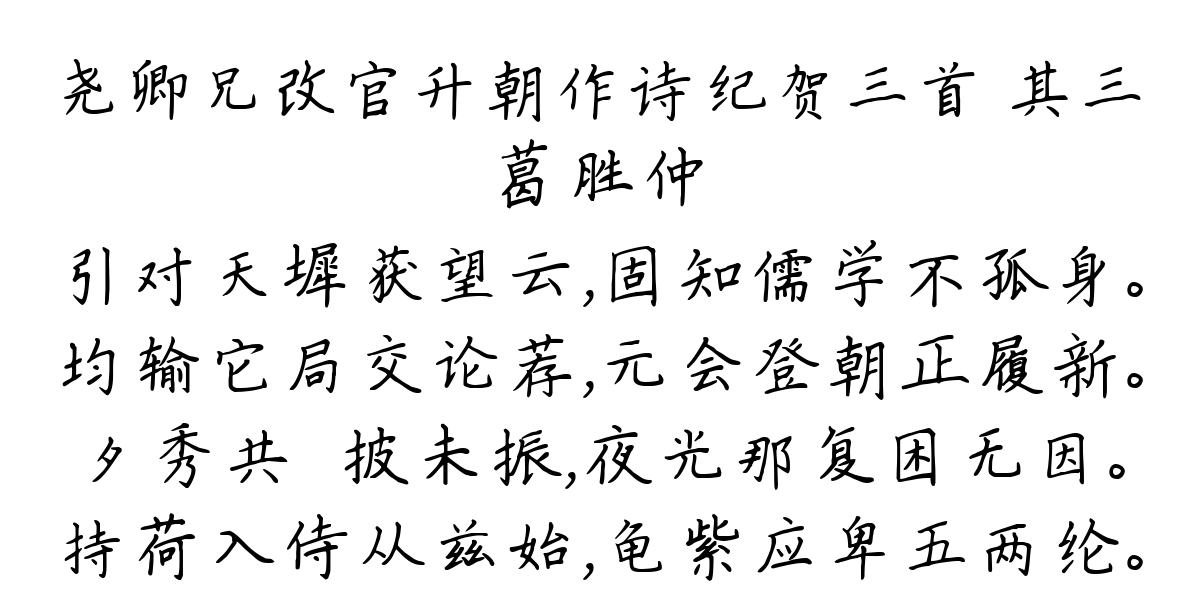 尧卿兄改官升朝作诗纪贺三首 其三
葛胜仲
引对天墀获望云,固知儒学不孤身。
均输它局交论荐,元会登朝正履新。
夕秀共 披未振,夜光那复困无因。
持荷入侍从兹始,龟紫应卑五两纶。